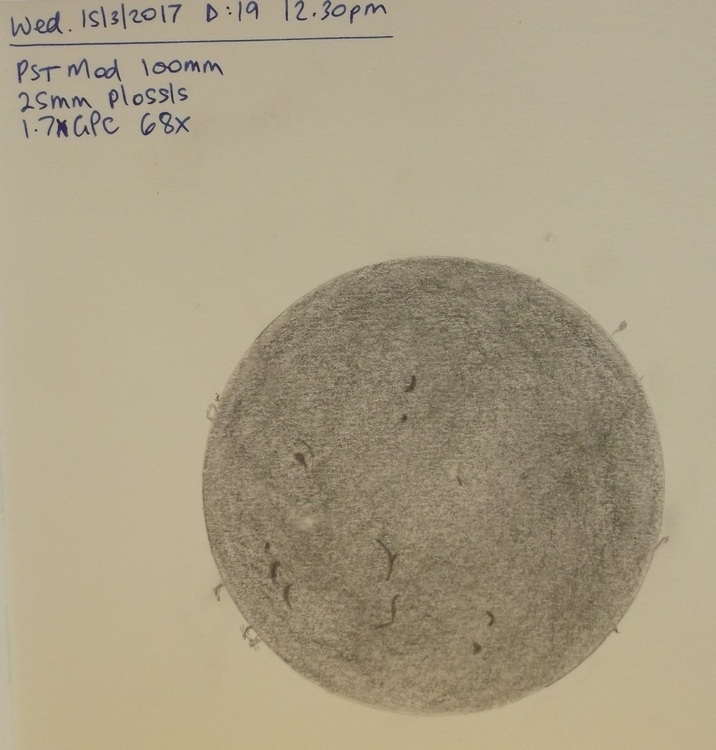 Wed. 15/3/2017 D:19 12.30pm
PST Mod 100mm
25mm Plossls
1.7x GPC 68x